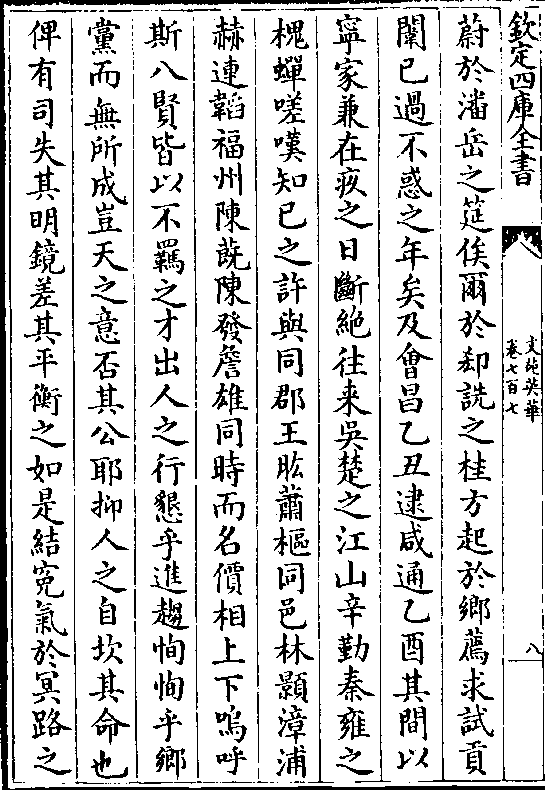 欽定四庫全書
文苑英華
卷七百七
八
蔚於潘岳之筵俟爾於郄詵之桂方起於鄉薦求試貢
闈已過不惑之年矣及會昌乙丑逮咸通乙酉其間以
寧家兼在疚之日斷絶往来吳楚之江山辛勤秦雍之
槐蟬嗟嘆知已之許與同郡王肱蕭樞同邑林顥漳浦
赫連韜福州陳蔇陳發詹雄同時而名價相上下嗚呼
斯八賢皆以不羈之才出人之行懇乎進趨恂恂乎鄉
黨而無所成豈天之意否其公耶抑人之自坎其命也
俾有司失其明鏡差其平衡之如是結寃氣於冥路之